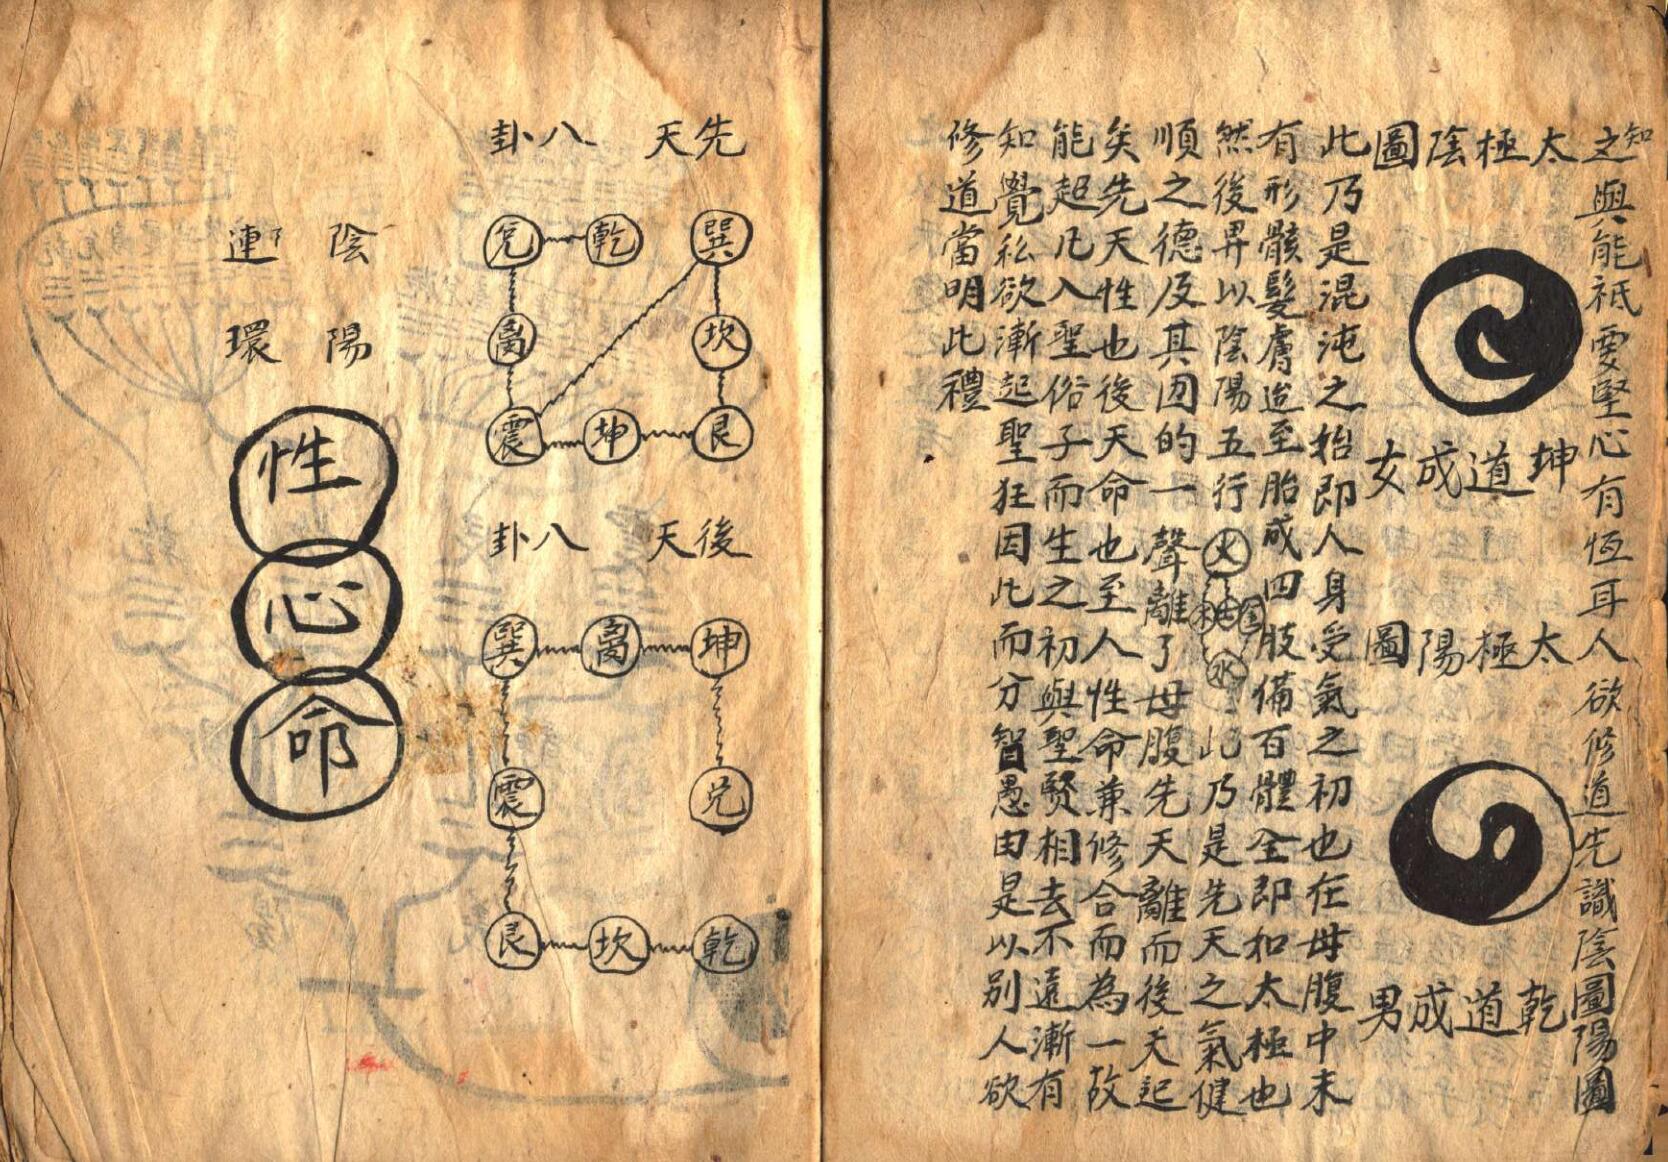 知之與能祗要堅心有恆耳人欲修道先識陰圖陽圖
太極陰圖
坤道成女
太極陽圖
乾道成男
此乃是混沌之始即人身受氣之初也在母腹中未
有形骸髮膚迨至胎成四肢備百體全即如太極也
然後畀以陰陽五行火木土金水此乃是先天之氣健
順之德及其囡的一聲離了母腹先天離而後天起
矣先天性也後天命也至人性命兼修合而為一故
能超凡入聖俗子而生之初與聖賢相去不遠漸有
知覺私欲漸起聖狂因此而分智愚由是以別人欲
修道當明此禮
先天 八卦
巽 乾 兌
坎 离
艮 坤 震
後天 八卦
坤 离 巽
兌 震
乾 坎 艮
陰陽
連環
性
心
命